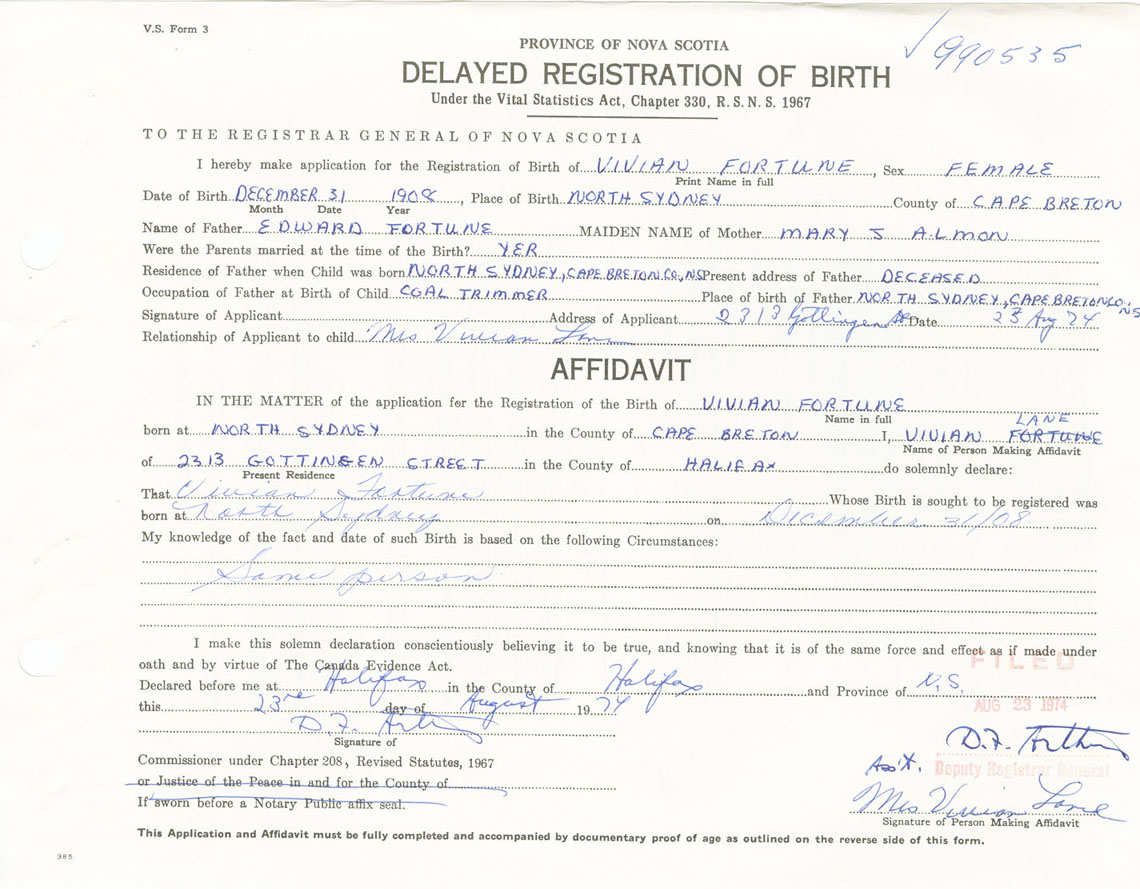 V.S. Form 3
✓ 990535
PROVINCE OF NOVA SCOTIA
DELAYED REGISTRATION OF BIRTH
Under the Vital Statistics Act, Chapter 330, R. S. N. S. 1967
TO THE REGISTRAR GENERAL OF NOVA SCOTIA
I hereby make application for the Registration of Birth of VIVIAN FORTUNE, Sex FEMALE
Print Name in full
Date of Birth DECEMBER 31 1908, Place of Birth NORTH SYDNEY County of CAPE BRETON
Month Date Year
Name of Father EDWARD FORTUNE MAIDEN NAME of Mother MARY S ALMON
Were the Parents married at the time of the Birth? YER
Residence of Father when Child was born NORTH SYDNEY, CAPE BRETON CO., NS Present address of Father DECEASED
Occupation of Father at Birth of Child COAL TRIMMER Place of birth of Father NORTH SYDNEY, CAPE BRETON CO., NS
Signature of Applicant Address of Applicant 2313 Gottingen St Date 23 Aug 74
Relationship of Applicant to child Mrs Vivian Lane
AFFIDAVIT
IN THE MATTER of the application for the Registration of the Birth of VIVIAN FORTUNE
Name in full LANE
born at NORTH SYDNEY in the County of CAPE BRETON I, VIVIAN FORTUNE
Name of Person Making Affidavit
of 2313 GOTTINGEN STREET in the County of HALIFAX do solemnly declare:
Present Residence
That Vivian Fortune Whose Birth is sought to be registered was
born at North Sydney on December 31/08
My knowledge of the fact and date of such Birth is based on the following Circumstances:
Same person
I make this solemn declaration conscientiously believing it to be true, and knowing that it is of the same force and effect as if made under
oath and by virtue of The Canada Evidence Act.
FILED
Declared before me at Halifax in the County of Halifax and Province of N.S.
this 23rd day of August 1974
AUG 23 1974
D.F. Arthur
Signature of
D.F. Arthur
Commissioner under Chapter 208, Revised Statutes, 1967
Ass't. Deputy Registrar General
or Justice of the Peace in and for the County of
If sworn before a Notary Public affix seal.
Mrs Vivian Lane
Signature of Person Making Affidavit
This Application and Affidavit must be fully completed and accompanied by documentary proof of age as outlined on the reverse side of this form.
385